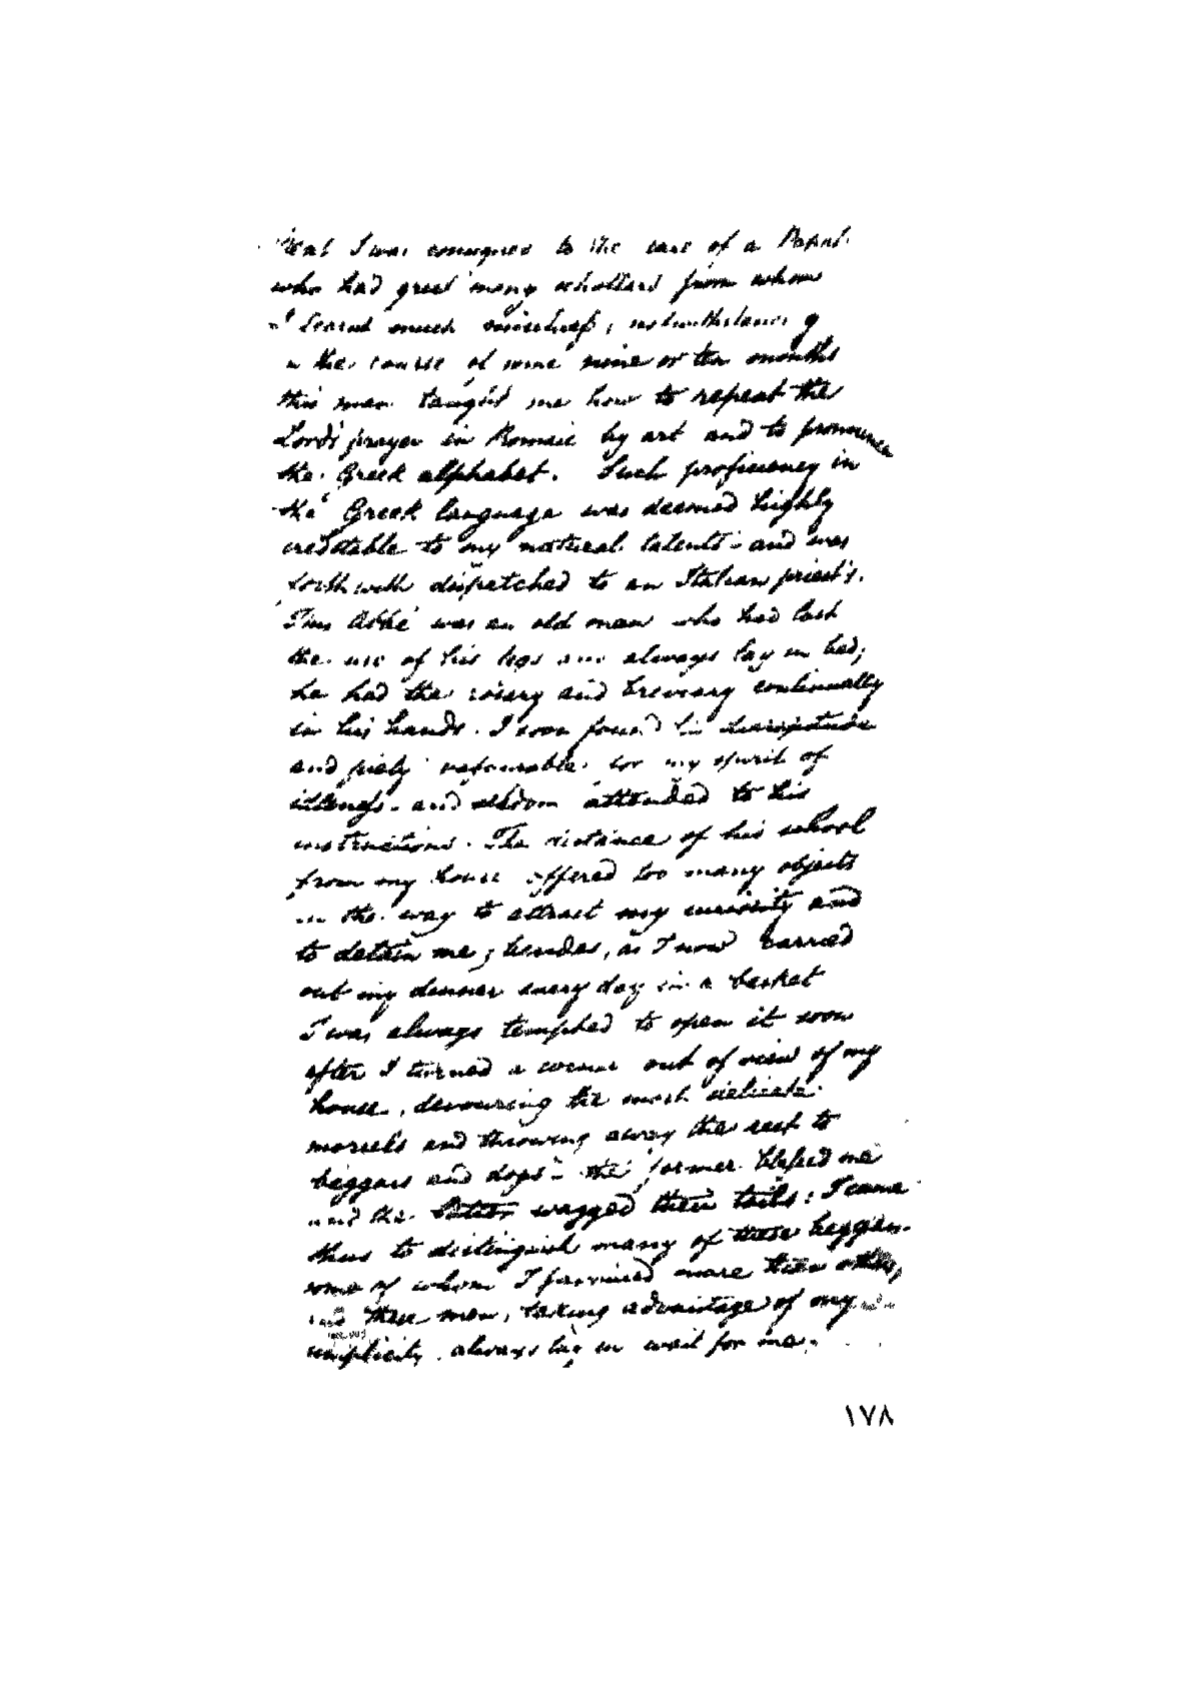 that I was consigned to the care of a Papas
who had great many schollars from whom
I learnt much mischief; notwithstanding
in the course of some nine or ten months
this man taught me how to repeat the
Lord's prayer in Romaic by art and to pronounce
the Greek alphabet. Such proficiency in
the Greek language was deemed highly
creditable to my natural talents - and was
forthwith dispatched to an Italian priest's.
This Abbé was an old man who had lost
the use of his legs and always lay in bed;
he had the rosary and breviary continually
in his hands. I soon found his
and piety favourable for my spirit of
idleness - and seldom attended to his
instructions. The distance of his school
from my house offered too many objects
in the way to attract my curiosity and
to detain me; besides, as I now carried
out my dinner every day in a basket
I was always tempted to open it soon
after I turned a corner out of view of my
house, devouring the most delicate
morsels and throwing away the rest to
beggars and dogs - the former blessed me
and the latter wagged their tails: I came
thus to distinguish many of these beggars.
some of whom I favoured more than others,
and these men, taking advantage of my
simplicity, always lay in wait for me.
١٧٨